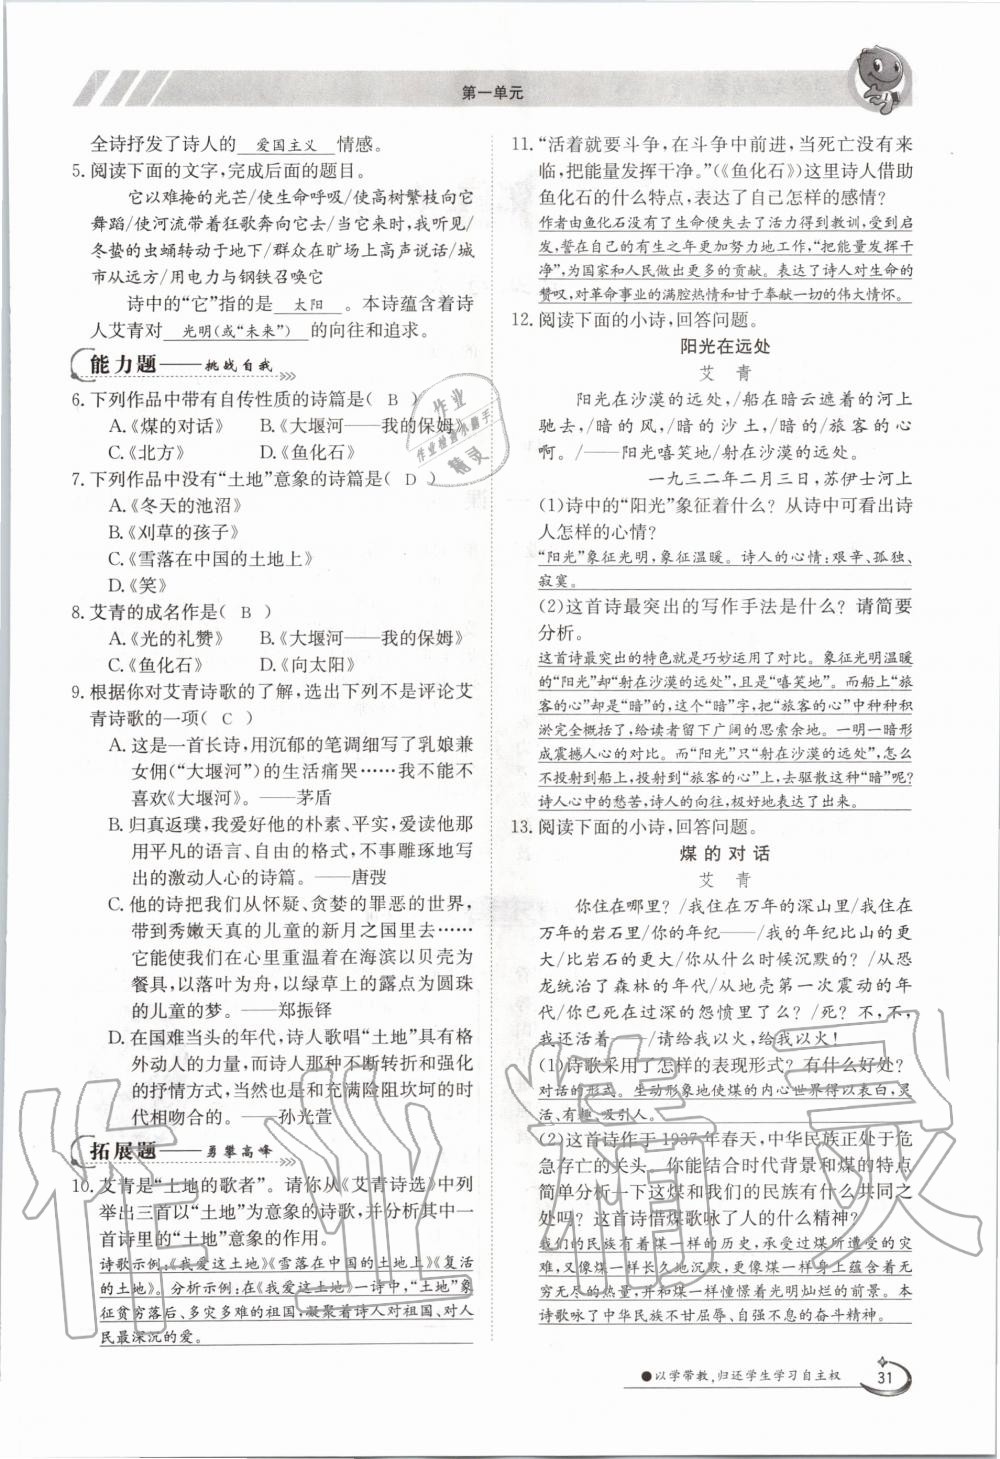 第一单元
全诗抒发了诗人的 爱国主义 情感。
5. 阅读下面的文字,完成后面的题目。
它以难掩的光芒/使生命呼吸/使高树繁枝向它
舞蹈/使河流带着狂歌奔向它去/当它来时,我听见/
冬蛰的虫蛹转动于地下/群众在旷场上高声说话/城
市从远方/用电力与钢铁召唤它
诗中的“它”指的是 太阳 。本诗蕴含着诗
人艾青对 光明(或“未来”) 的向往和追求。
能力题——挑战自我
6. 下列作品中带有自传性质的诗篇是( B )
A.《煤的对话》 B.《大堰河——我的保姆》
C.《北方》 D.《鱼化石》
7. 下列作品中没有“土地”意象的诗篇是( D )
A.《冬天的池沼》
B.《刈草的孩子》
C.《雪落在中国的土地上》
D.《笑》
8. 艾青的成名作是( B )
A.《光的礼赞》 B.《大堰河——我的保姆》
C.《鱼化石》 D.《向太阳》
9. 根据你对艾青诗歌的了解,选出下列不是评论艾
青诗歌的一项( C )
A. 这是一首长诗,用沉郁的笔调细写了乳娘兼
女佣(“大堰河”)的生活痛哭……我不能不
喜欢《大堰河》。——茅盾
B. 归真返璞,我爱好他的朴素、平实,爱读他那
用平凡的语言,自由的格式,不事雕琢地写
出的激动人心的诗篇。——唐弢
C. 他的诗把我们从怀疑、贪婪的罪恶的世界,
带到秀嫩天真的儿童的新月之国里去……
它能使我们在心里重温着在海滨以贝壳为
餐具,以落叶为舟,以绿草上的露点为圆珠
的儿童的梦。——郑振铎
D. 在国难当头的年代,诗人歌唱“土地”具有格
外动人的力量,而诗人那种不断转折和强化
的抒情方式,当然也是和充满险阻坎坷的时
代相吻合的。——孙光萱
拓展题——勇攀高峰
10. 艾青是“土地的歌者”。请你从《艾青诗选》中列
举出三首以“土地”为意象的诗歌,并分析其中一
首诗里的“土地”意象的作用。
诗歌示例:《我爱这土地》《雪落在中国的土地上》《复活
的土地》。分析示例:在《我爱这土地》一诗中,“土地”象
征贫穷落后、多灾多难的祖国,凝聚着诗人对祖国、对人
民最深沉的爱。
11. “活着就要斗争,在斗争中前进,当死亡没有来
临,把能量发挥干净。”(《鱼化石》)这里诗人借助
鱼化石的什么特点,表达了自己怎样的感情?
作者由鱼化石没有了生命便失去了活力得到教训,受到启
发,誓在自己的有生之年更加努力地工作,“把能量发挥干
净”,为国家和人民做出更多的贡献。表达了诗人对生命的
赞叹,对革命事业的满腔热情和甘于奉献一切的伟大情怀。
12. 阅读下面的小诗,回答问题。
阳光在远处
艾 青
阳光在沙漠的远处,/船在暗云遮着的河上
驰去,/暗的风,/暗的沙土,/暗的/旅客的心
啊。/——阳光嘻笑地/射在沙漠的远处。
一九三二年二月三日,苏伊士河上
(1)诗中的“阳光”象征着什么?从诗中可看出诗
人怎样的心情?
“阳光”象征光明,象征温暖。诗人的心情:艰辛、孤独、
寂寞。
(2)这首诗最突出的写作手法是什么?请简要
分析。
这首诗最突出的特色就是巧妙运用了对比。象征光明温暖
的“阳光”却“射在沙漠的远处”,且是“嘻笑地”。而船上“旅
客的心”却是“暗”的,这个“暗”字,把“旅客的心”中种种积
淤完全显现出来,给读者留下广阔的思索余地。一明一暗形
成震撼人心的对比。而“阳光”只“射在沙漠的远处”,怎么
不投射到船上,投射到“旅客的心”上,去驱散这种“暗”呢?
诗人心中的愁苦,诗人的向往,极好地表达了出来。
13. 阅读下面的小诗,回答问题。
煤 的 对 话
艾 青
你住在哪里?/我住在万年的深山里/我住在
万年的岩石里/你的年纪——/我的年纪比山的更
大/比岩石的更大/你从什么时候沉默的?/从恐
龙统治了森林的年代/从地壳第一次震动的年代
/你已死在过深的怨愤里了么?/死?不,不,
我还活着——/请给我以火,给我以火!
(1)诗歌采用了怎样的表现形式?有什么好处?
对话的形式。生动形象地使煤的内心世界得以表白,灵
活、有趣、吸引人。
(2)这首诗作于1937年春天,中华民族正处于危
急存亡的关头。你能结合时代背景和煤的特点
简单分析一下这煤和我们的民族有什么共同之
处吗?这首诗借煤歌咏了人的什么精神?
我们的民族有着像煤一样的历史,承受过煤所遭受的灾
难,又像煤一样长久地沉默,更像煤一样身上蕴含着光明
无穷尽的能量,并和煤一样憧憬着光明灿烂的前景。本
诗歌咏了中华民族不甘屈辱、自强不息的奋斗精神。
●以学带教,归还学生学习自主权
31
作业
作业检查小助手
精灵
作业精灵